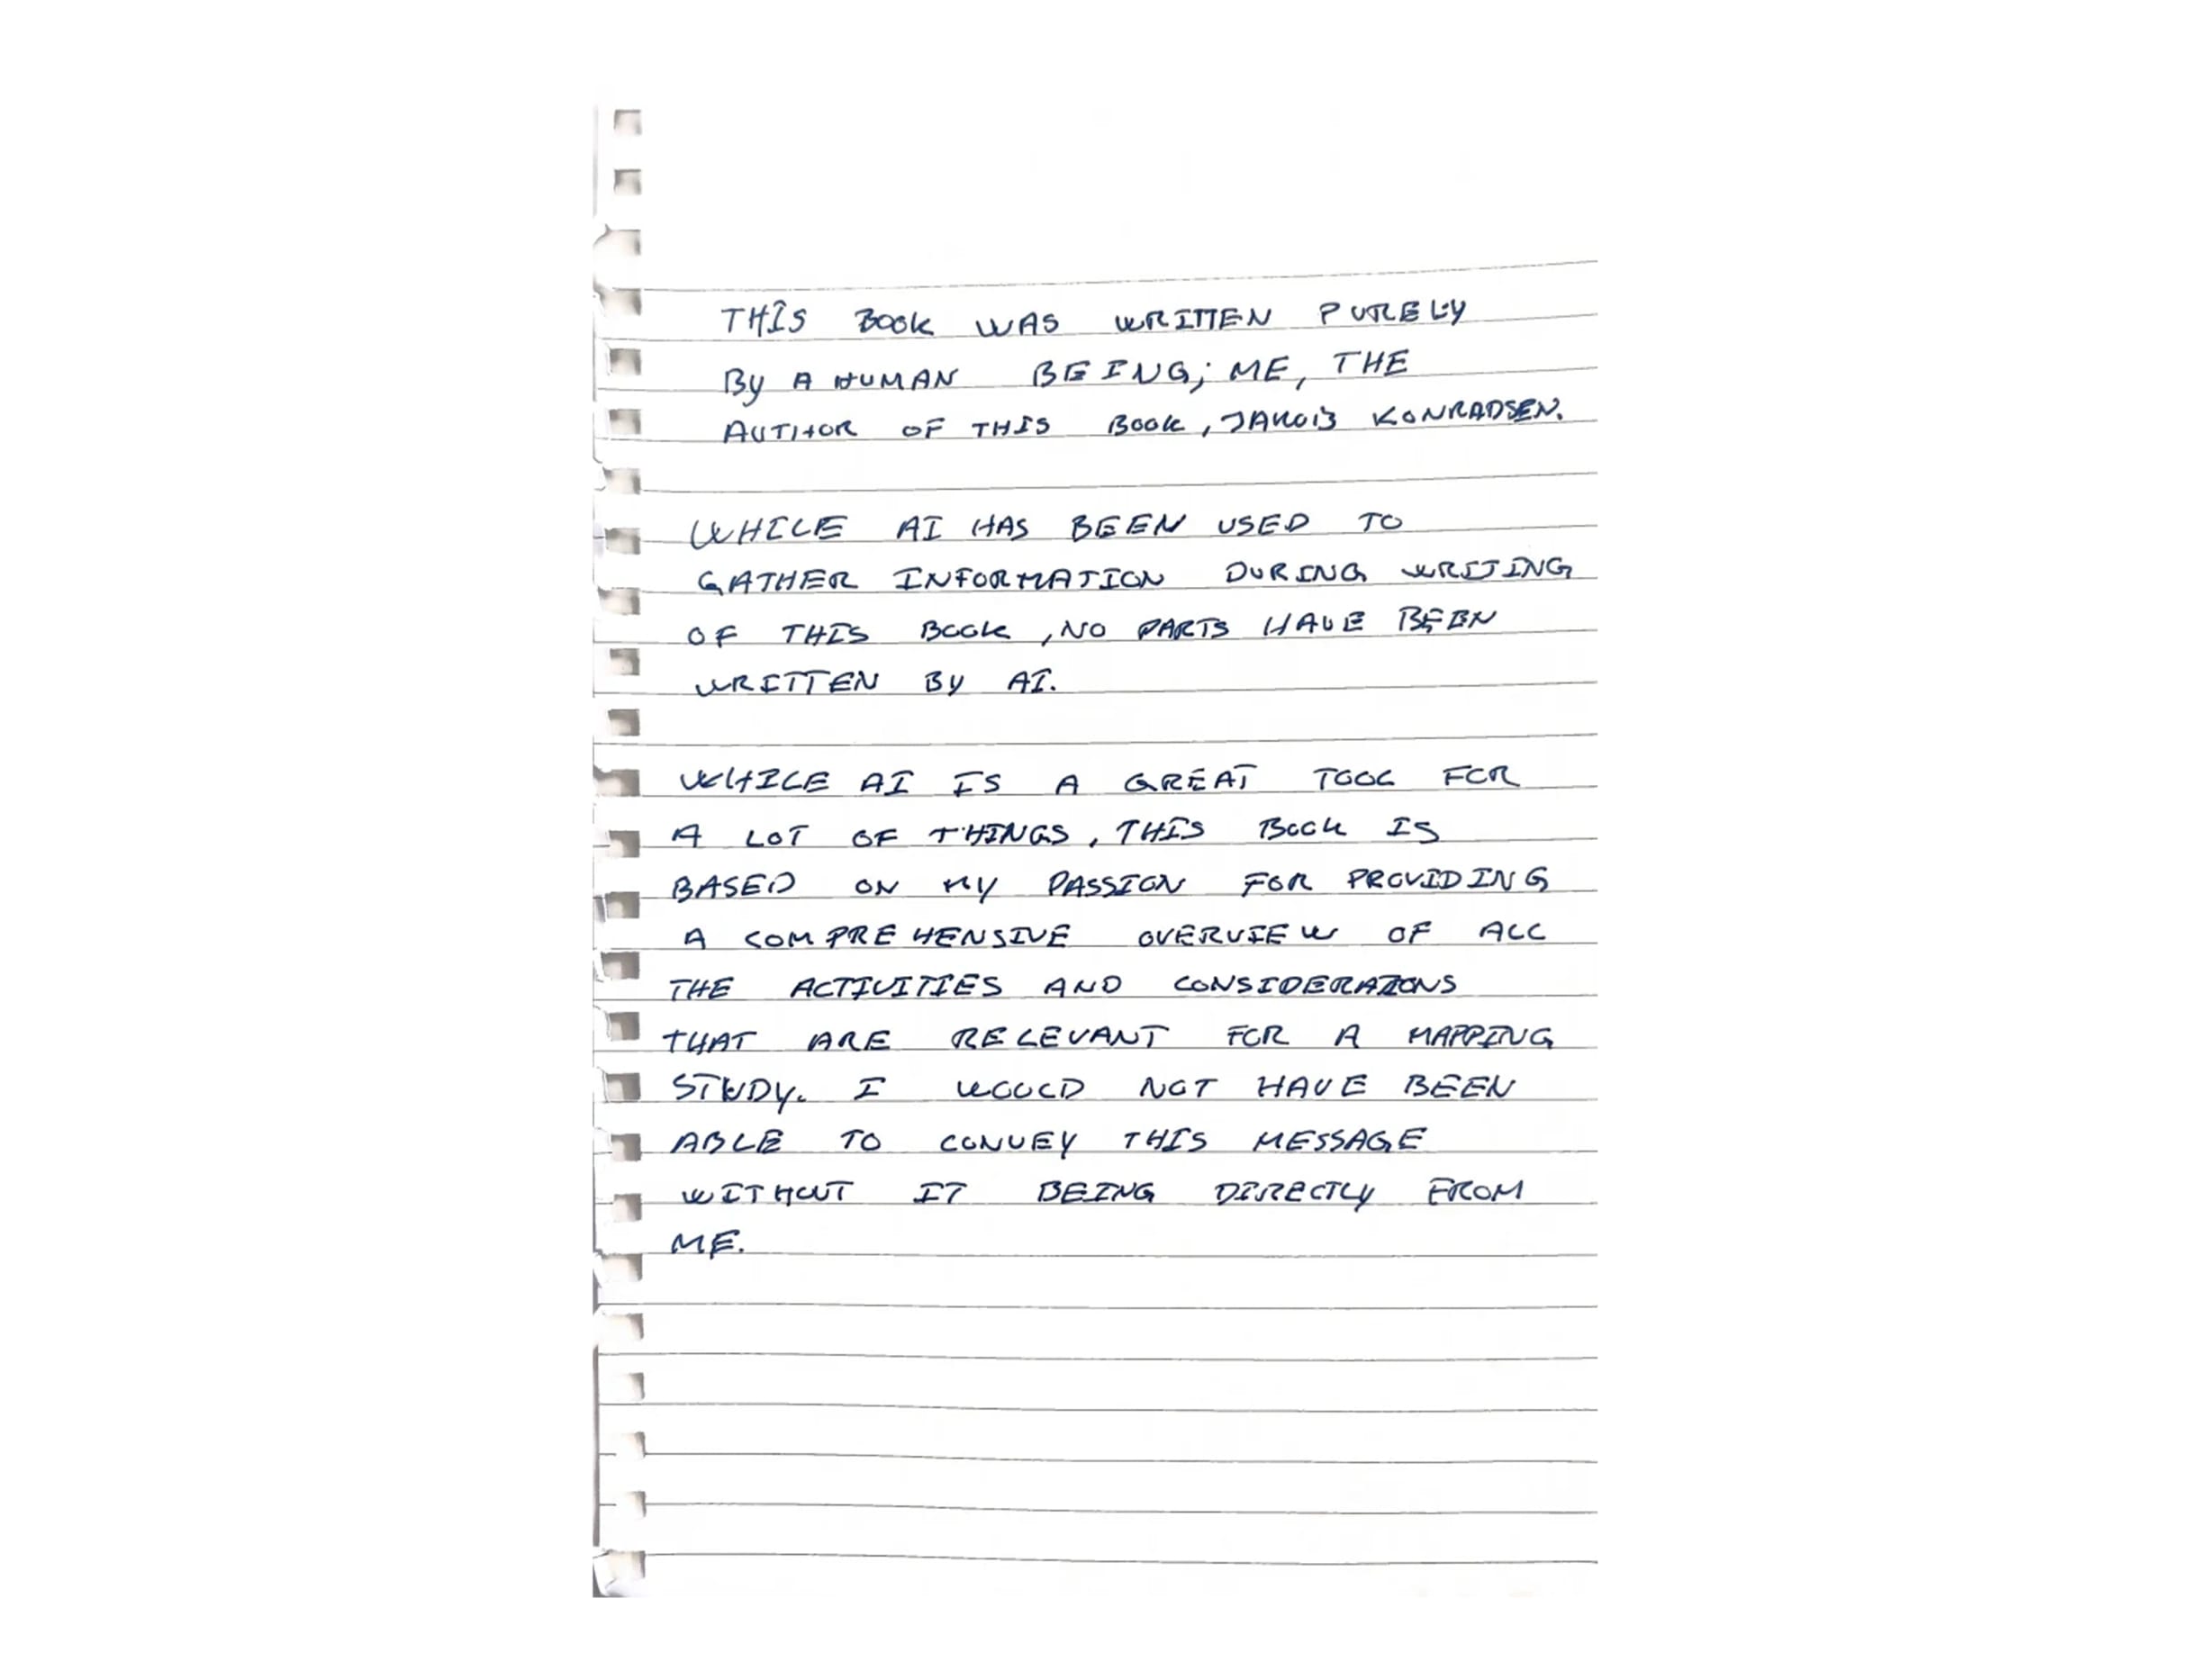 THIS BOOK WAS WRITTEN PURELY
BY A HUMAN BEING; ME, THE
AUTHOR OF THIS BOOK, JAKOB KONRADSEN.
WHILE AI HAS BEEN USED TO
GATHER INFORMATION DURING WRITING
OF THIS BOOK, NO PARTS HAVE BEEN
WRITTEN BY AI.
WHILE AI IS A GREAT TOOL FOR
A LOT OF THINGS, THIS BOOK IS
BASED ON MY PASSION FOR PROVIDING
A COMPREHENSIVE OVERVIEW OF ALL
THE ACTIVITIES AND CONSIDERATIONS
THAT ARE RELEVANT FOR A MAPPING
STUDY. I WOULD NOT HAVE BEEN
ABLE TO CONVEY THIS MESSAGE
WITHOUT IT BEING DIRECTLY FROM
ME.